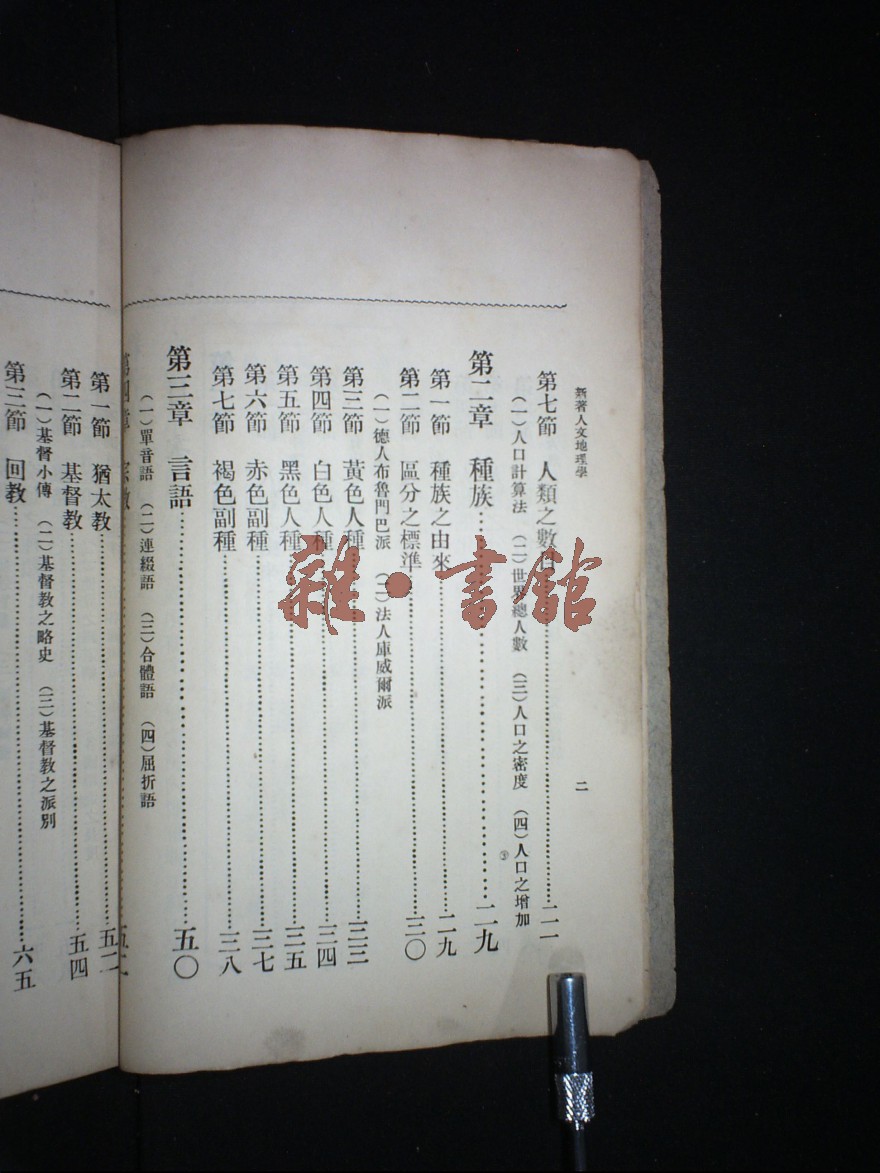 新著人文地理學
二
第七節 人類之數目 二一
(一)人口計算法 (二)世界總人數 (三)人口之密度 (四)人口之增加
第二章 種族 二九
第一節 種族之由來 二九
第二節 區分之標準 三〇
(一)德人布魯門巴派 (二)法人庫威爾派
第三節 黃色人種 三三
第四節 白色人種 三四
第五節 黑色人種 三五
第六節 赤色副種 三七
第七節 褐色副種 三八
第三章 言語 五〇
(一)單音語 (二)連綴語 (三)合體語 (四)屈折語
第四章 宗教
第一節 猶太教 五二
第二節 基督教 五四
(一)基督小傳 (二)基督教之略史 (三)基督教之派別
第三節 回教 六五
雜·書館